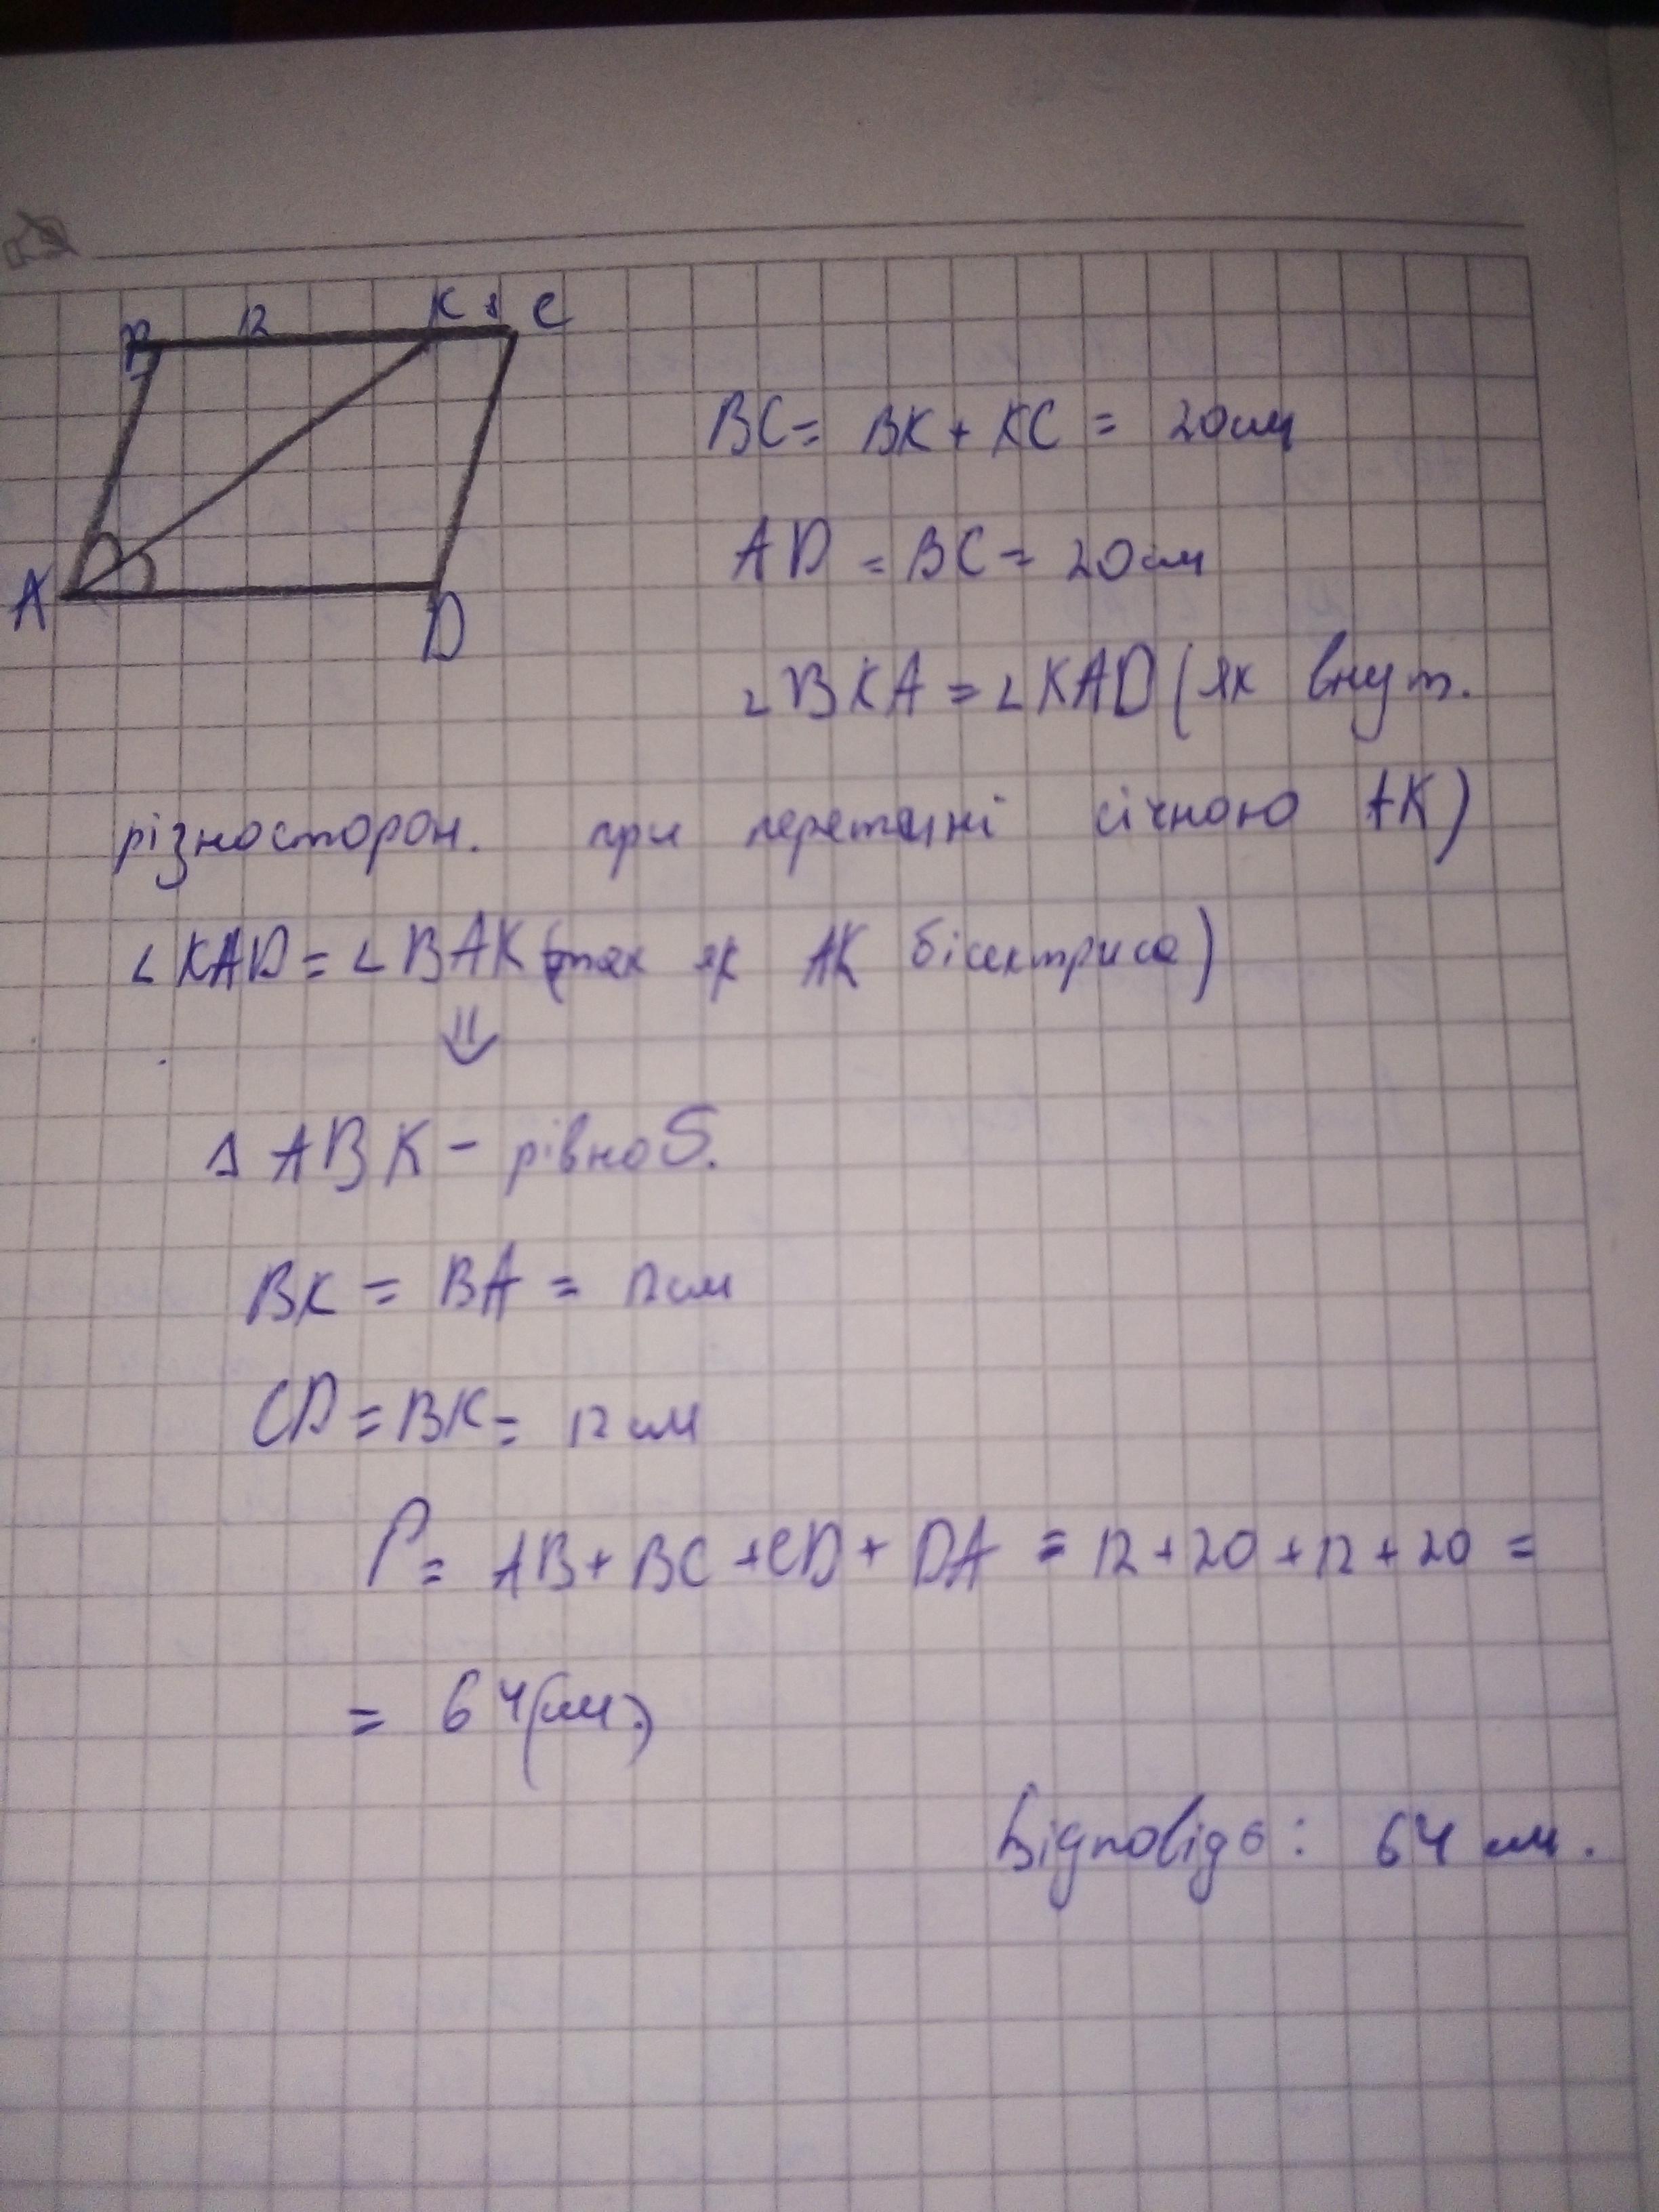 B 12 K 8 C
A D
BC = BK + KC = 20см
AD = BC = 20см
∠BKA = ∠KAD (як внут.
різносторон. при перетині січною AK)
∠KAD = ∠BAK (так як AK бісектриса)
⇓
Δ ABK - рівноб.
BK = BA = 12см
CD = BK = 12см
P = AB + BC + CD + DA = 12 + 20 + 12 + 20 =
= 64(см.)
Відповідь: 64 см.